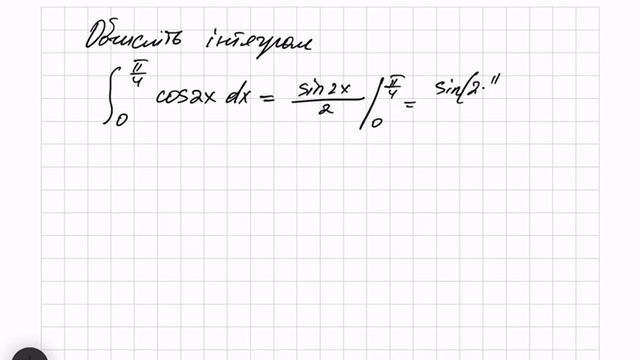 Обчисліть інтеграл
∫₀^(π/4) cos2x dx = sin2x/2 |₀^(π/4) = sin(2·